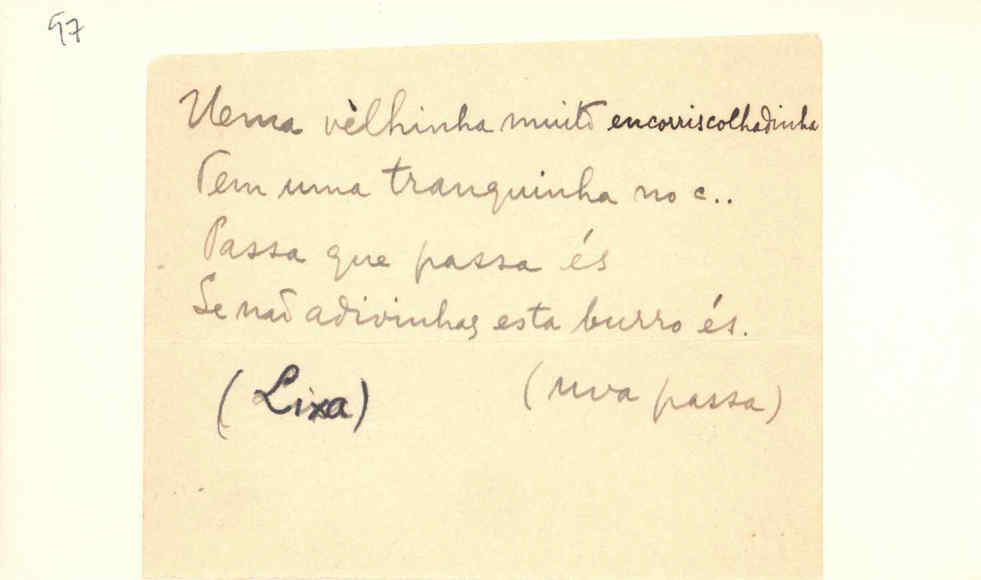 97
Uema vèlhinha muito encorriscolhadinha
Tem uma tranquinha no c..
Passa que passa és
Se não adivinhas esta burro és.
(Lixa) (uva passa)